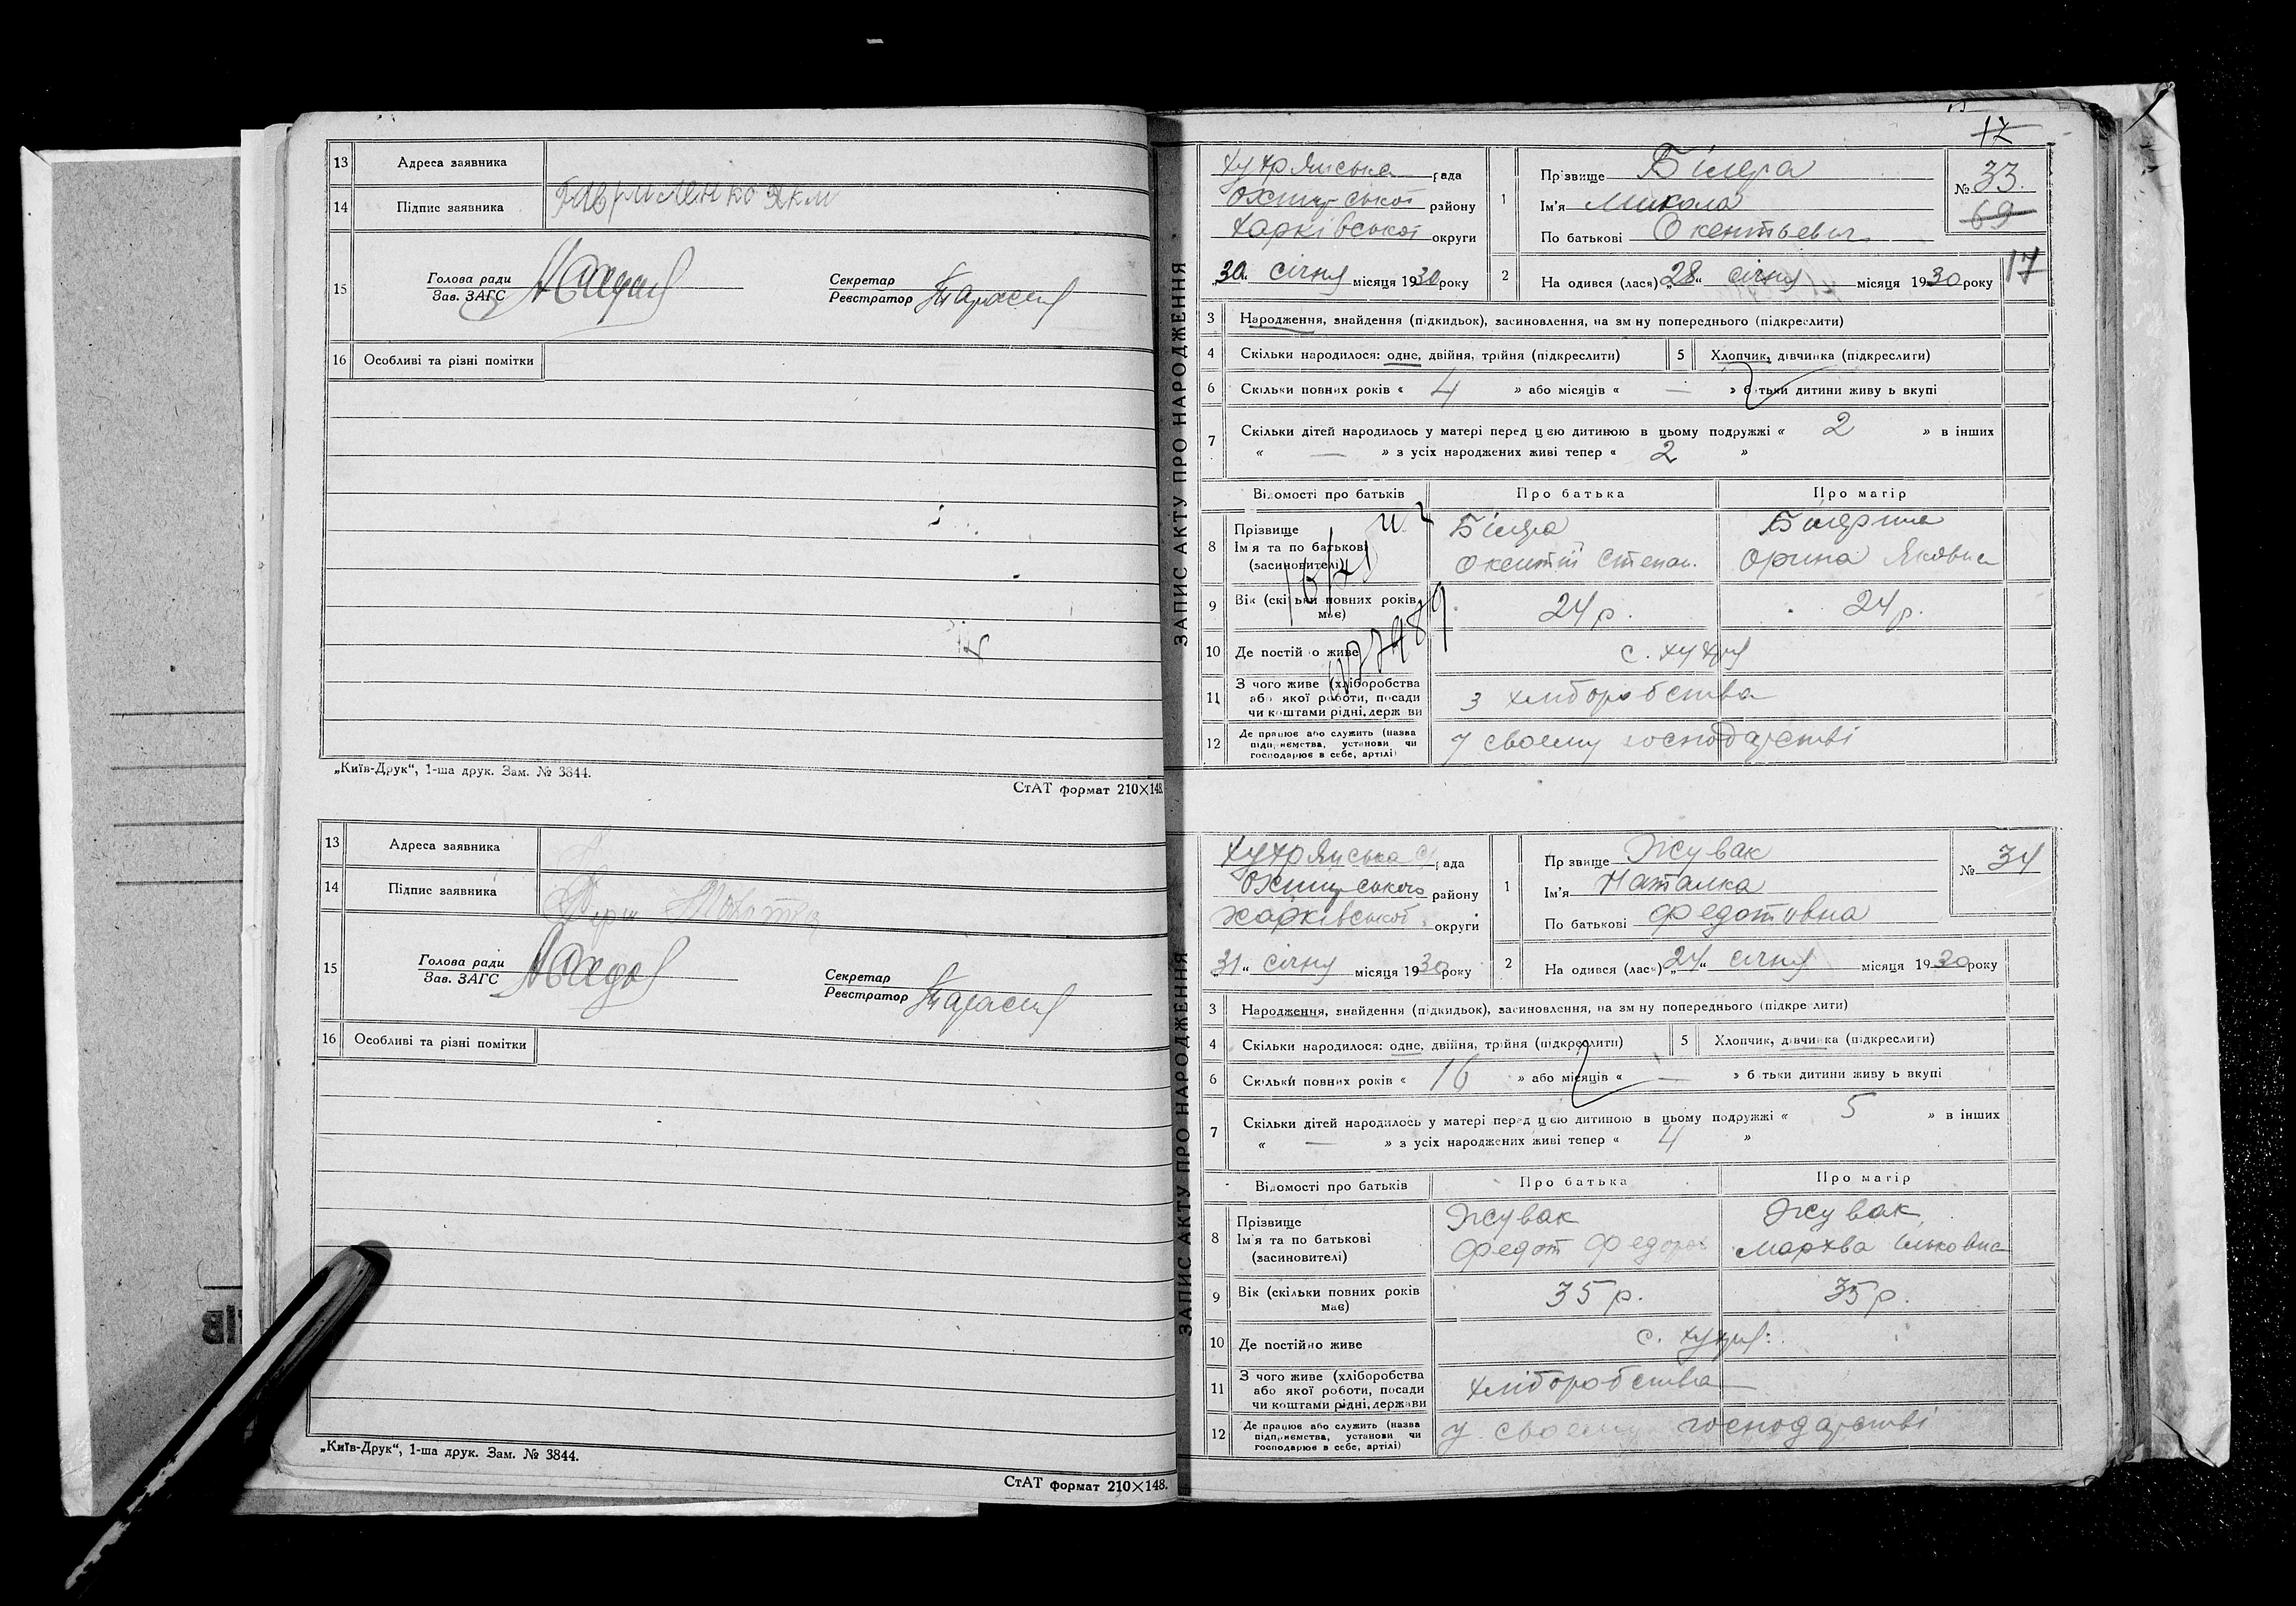 13 Адреса заявника
14 Підпис заявника Гавриленко Яким
15 Голова ради
Зав. ЗАГС
Секретар
Реєстратор
16 Особливі та різні помітки
„Київ-Друк“, 1-ша друк. Зам. № 3844.
СтАТ формат 210×148.
13 Адреса заявника
14 Підпис заявника
15 Голова ради
Зав. ЗАГС
Секретар
Реєстратор
16 Особливі та різні помітки
„Київ-Друк“, 1-ша друк. Зам. № 3844.
СтАТ формат 210×148.
17
ЗАПИС АКТУ ПРО НАРОДЖЕННЯ
Хухрянська рада
району
Харківської округи
„30“ січня місяця 1930 року
1 Прізвище Біляра
Ім'я Микола
По батькові Окентьевич
№ 33
69
2 На одився (лася) „28“ січня місяця 1930 року
17
3 Народження, знайдення (підкидьок), засиновлення, на зміну попереднього (підкреслити)
4 Скільки народилося: одне, двійня, трійня (підкреслити)
5 Хлопчик, дівчинка (підкреслити)
6 Скільки повних років « 4 » або місяців « — » батьки дитини живуть вкупі
7 Скільки дітей народилось у матері перед цією дитиною в цьому подружжі « 2 » в інших
« — » з усіх народжених живі тепер « 2 »
Відомості про батьків Про батька Про матір
8 Прізвище
Ім'я та по батькові
(засиновителі)
Біляра
Окентій Степан.
Орина Яковна
9 Вік (скільки повних років має) 24 р. 24 р.
10 Де постійно живе с. Хухря
11 З чого живе (хліборобства
або якої роботи, посади
чи коштами рідні, держави
з хліборобства
12 Де працює або служить (назва
підприємства, установи чи
господарює в себе, артілі)
у своему господарстві
ЗАПИС АКТУ ПРО НАРОДЖЕННЯ
Хухрянська с/рада
району
Харківської округи
31 „ січня місяця 1930 року
1 Прізвище Жувак
Ім'я Наталка
По батькові Федотовна
№ 34
2 На одився (лася) „24“ січня місяця 1930 року
3 Народження, знайдення (підкидьок), засиновлення, на зміну попереднього (підкреслити)
4 Скільки народилося: одне, двійня, трійня (підкреслити)
5 Хлопчик, дівчинка (підкреслити)
6 Скільки повних років « 16 » або місяців « — » батьки дитини живуть вкупі
7 Скільки дітей народилось у матері перед цією дитиною в цьому подружжі « 5 » в інших
« — » з усіх народжених живі тепер « 4 »
Відомості про батьків Про батька Про матір
8 Прізвище
Ім'я та по батькові
(засиновителі)
Жувак Жувак
Федот Федоров Мархва Ільковна
9 Вік (скільки повних років має) 35 р. 35 р.
10 Де постійно живе с. Хухря
11 З чого живе (хліборобства
або якої роботи, посади
чи коштами рідні, держави
хліборобства
12 Де працює або служить (назва
підприємства, установи чи
господарює в себе, артілі)
у своему господарстві